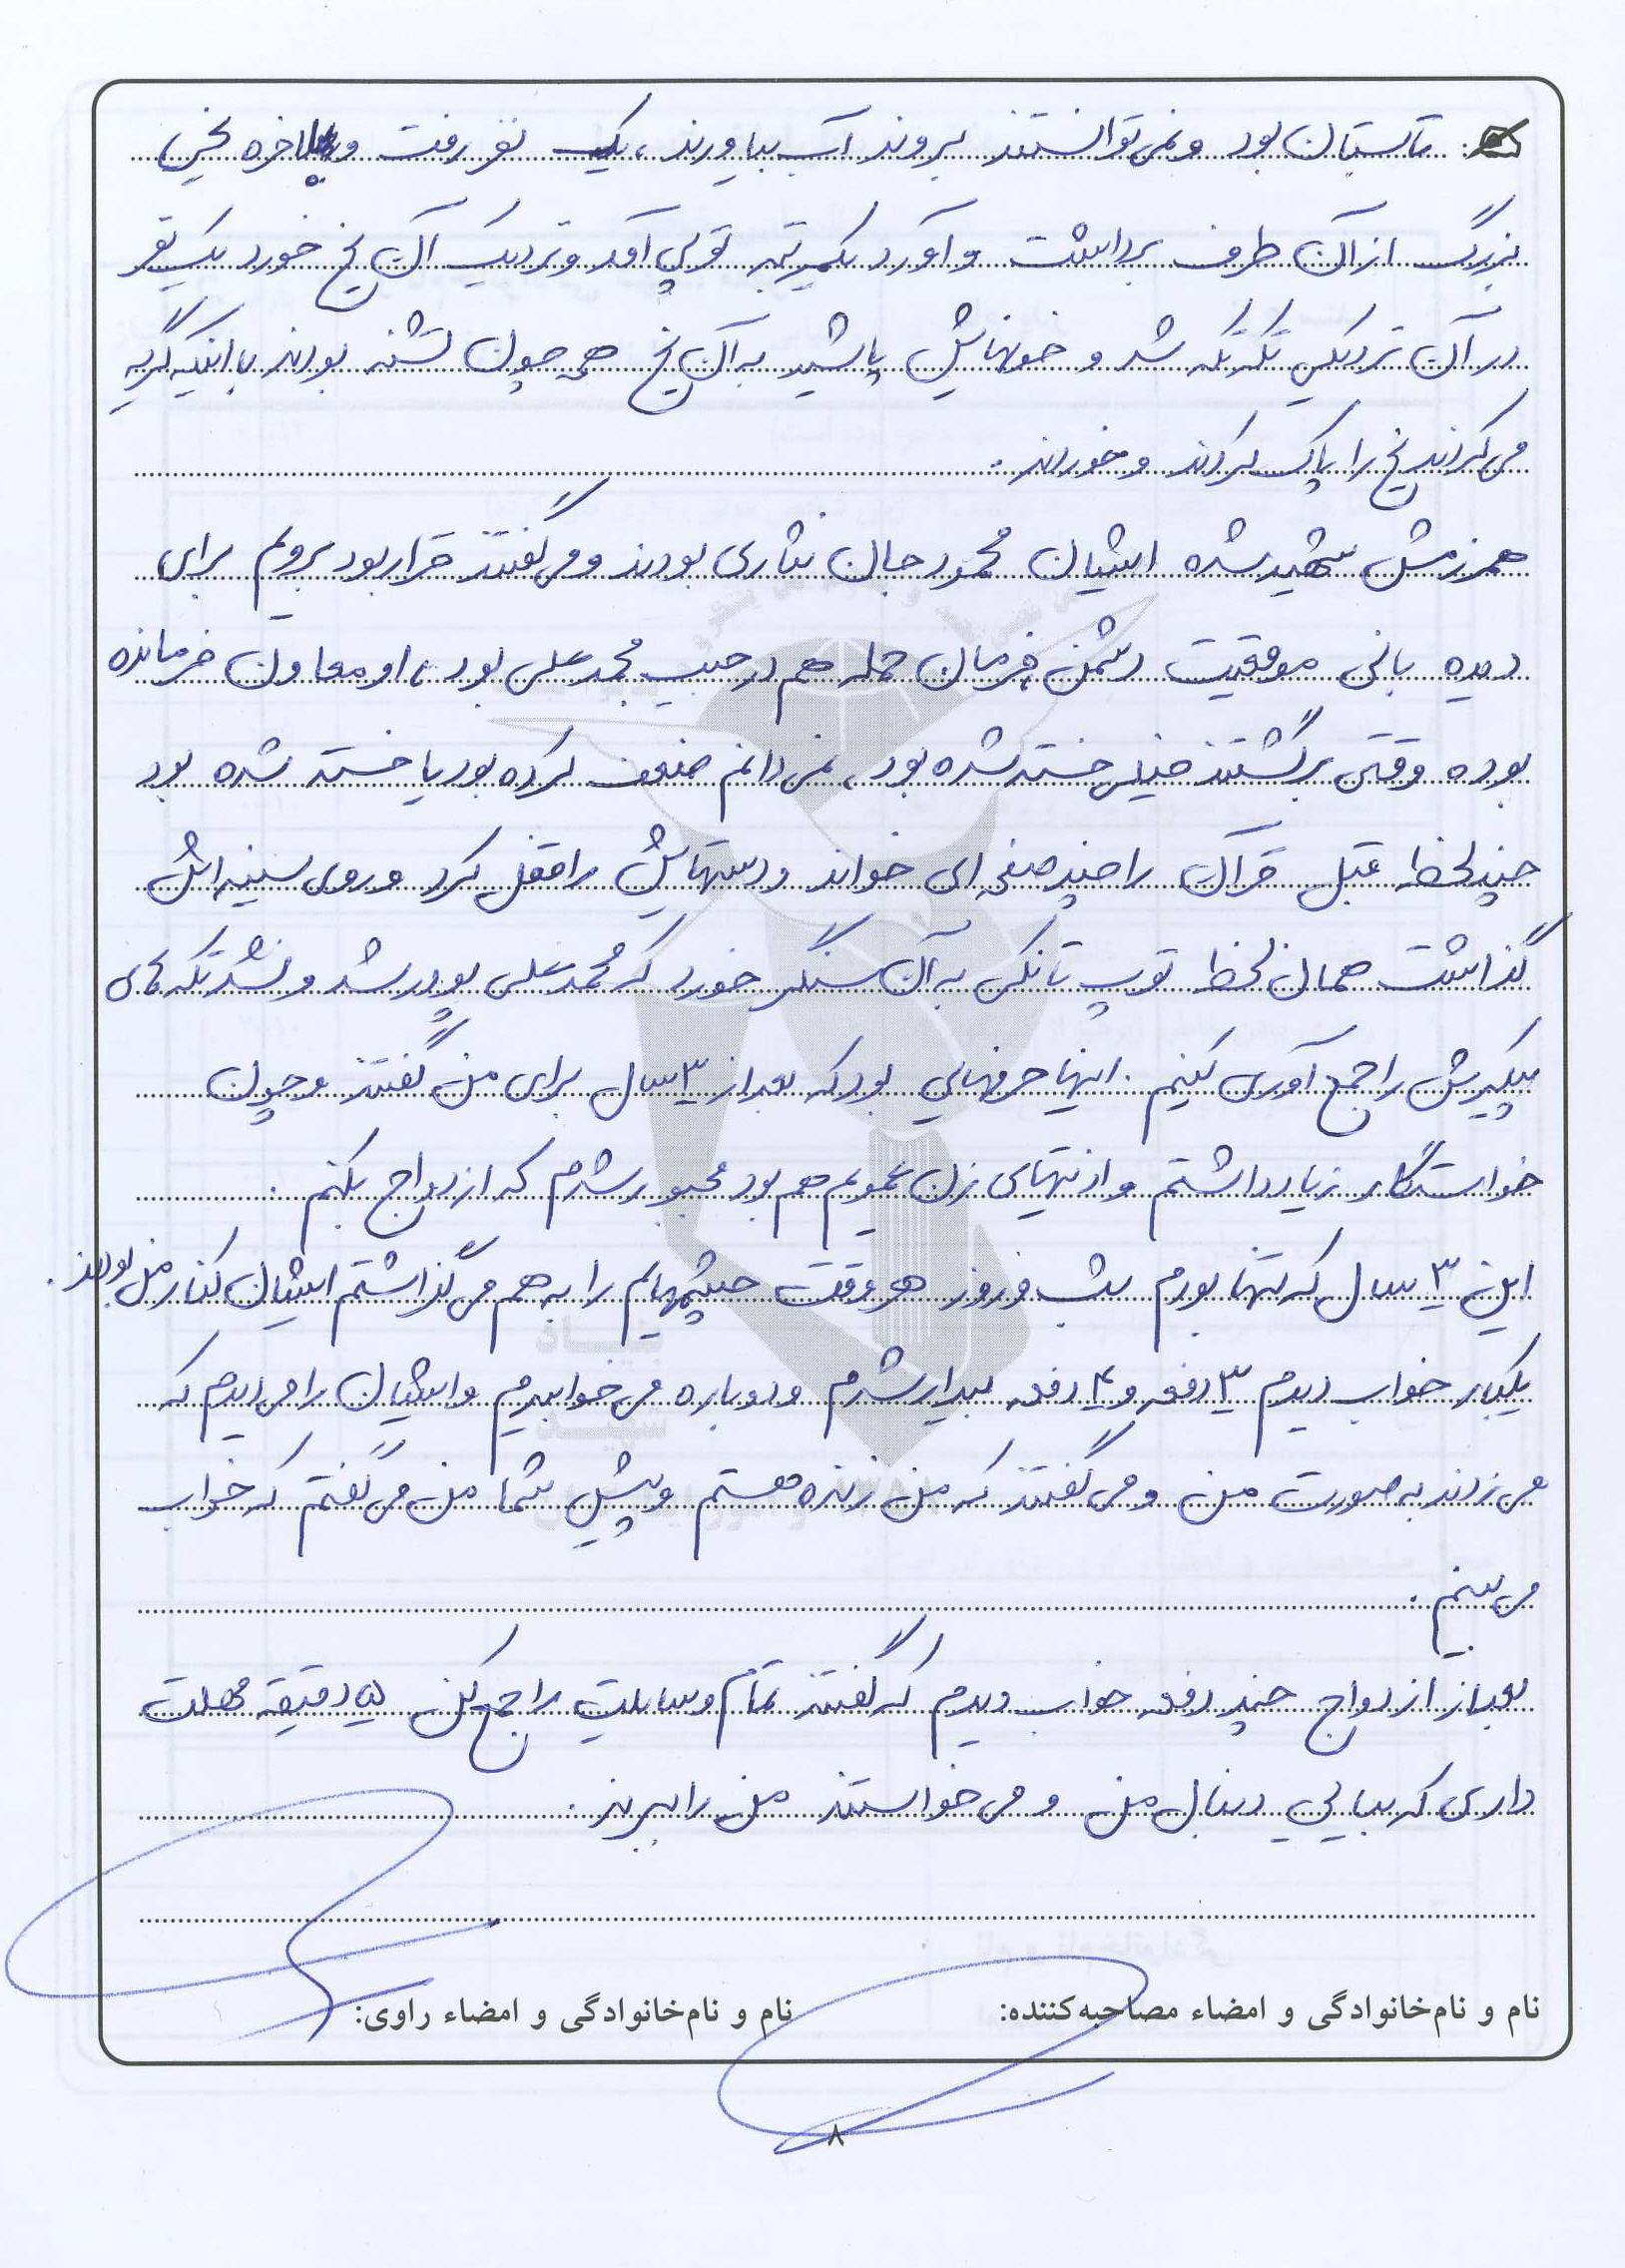 تابستان بود و نمی توانستند بروند آب بیاورند، یک نفر رفت و بلاخره یخی
بزرگ از آن طرف برداشت و آورد یک تیر توپی آمد و نزدیک آن یخ خورد یک نفر
در آن نزدیکی تکه تکه شد و خونهایش پاشید به آن یخ همه چون تشنه بودند با اینکه گریه
می کردند یخ را پاک کردند و خوردند.
همرزمش شهید شده ایشان محمود جان نثاری بودند و می گفتند قرار بود برویم برای
دیده بانی موقعیت دشمن، فرمان حمله هم در جیب محمدعلی بود، او معاون فرمانده
بوده وقتی برگشتند خیلی خسته شده بود، نمی دانم ضعف کرده بود یا خسته شده بود
چند لحظه قبل قرآن را چند صفحه ای خواند و دستهایش را قفل کرد و روی سینه اش
گذاشت همان لحظه توپ تانکی به آن سنگر خورد که محمدعلی پودر شد و نشد تکه های
پیکرش را جمع آوری کنیم. اینها حرفهایی بود که بعد از ۳ سال برای من گفتند و چون
خواستگار زیاد داشتم و از تنهایی زن عمویم هم بود مجبور شدم که ازدواج بکنم.
این ۳ سال که تنها بودم شب و روز هر وقت چشمهایم را به هم می گذاشتم ایشان کنار من بودند.
یکبار خواب دیدم ۳ دفعه و ۴ دفعه بیدار شدم و دوباره می خوابیدم و ایشان را می دیدم که
می زدند به صورت من و می گفتند که من زنده هستم و پیش شما من می گفتم که خواب
می بینم.
بعد از ازدواج چند دفعه خواب دیدم که گفتند تمام وسایلت را جمع کن دقیقه مهلت
داری که بیایی دنبال من و می خواستند من را ببرند.
نام و نام‌خانوادگی و امضاء مصاحبه‌کننده: نام و نام‌خانوادگی و امضاء راوی:
۸